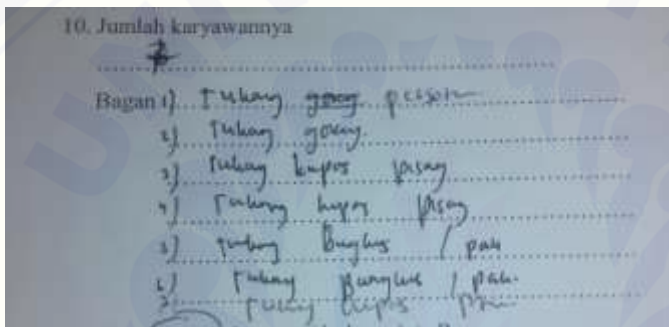 10. Jumlah karyawannya
7
Bagan 1) Tukang goreng
2) Tukang goreng
3) Tukang kupas pisang
4) Tukang kupas pisang
5) Tukang bungkus / pak
6) Tukang bungkus / pak.
7 Tukang kupas